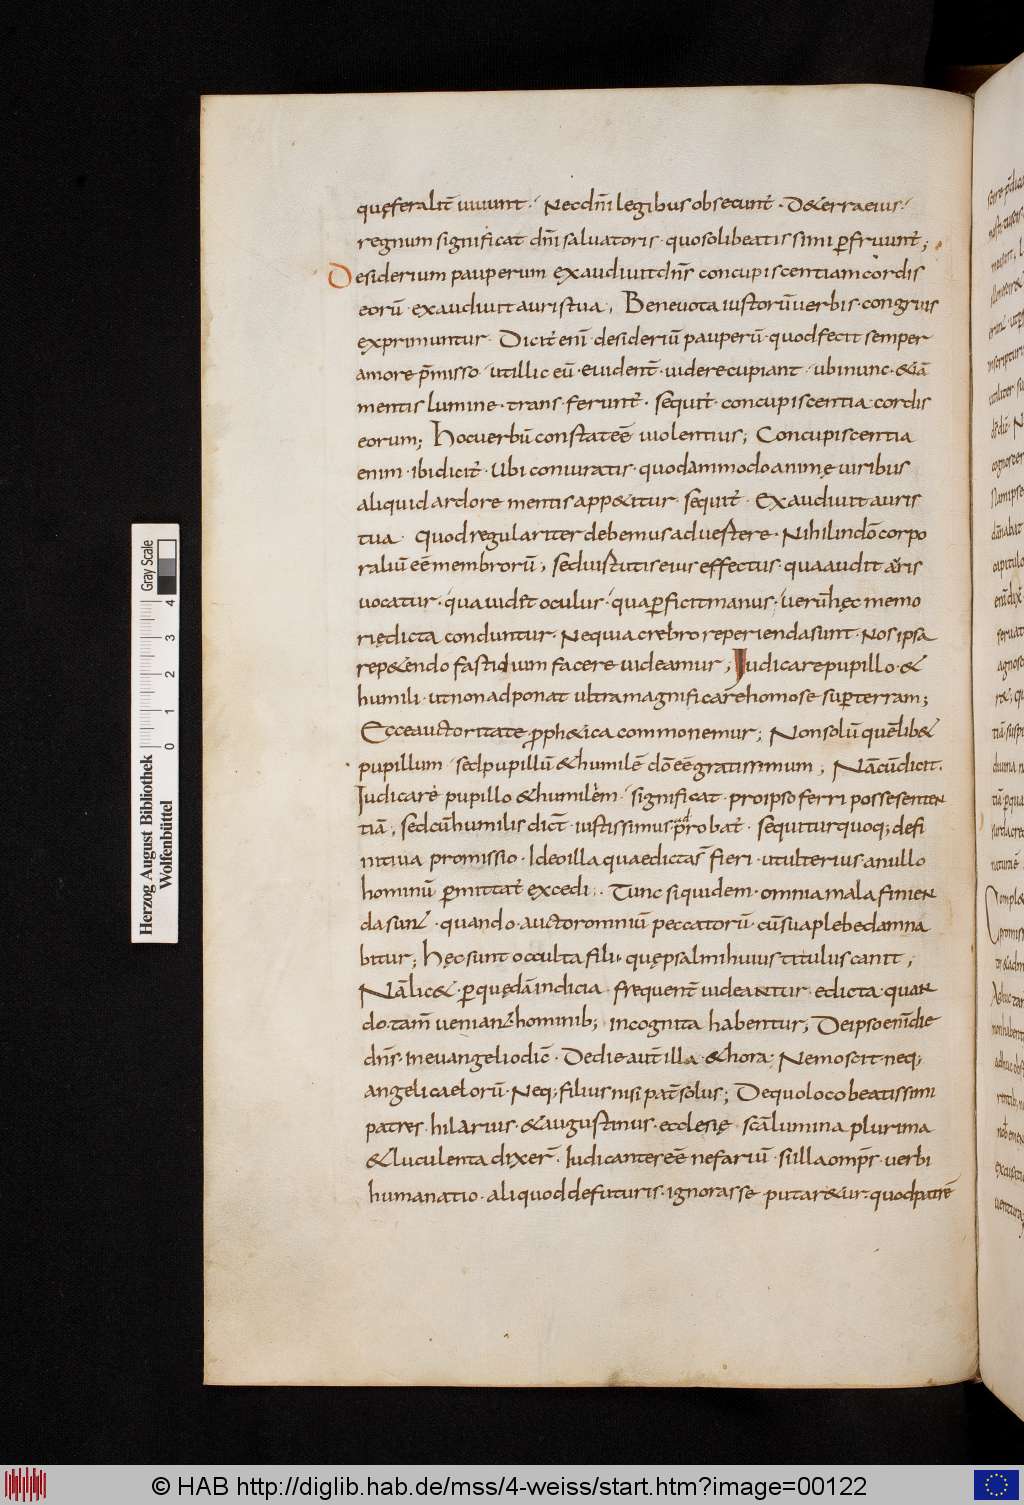 quęferalit̄ uiuunt · Nec dn̄i legibus obsecunt̄ · D&erra eius ·
regnum significat dn̄i saluatoris · quo soli beatissimi p̄fruunt̄ ;
Desiderium pauperum exaudiuit dn̄s concupiscentiam cordis
eorū · exaudiuit auris tua ; Beneuota iustorū uerbis · congruis
exprimuntur · Dicit̄ enī · desideriū pauperū · quod fecit semper
amore p̄misso · ut illic eū · euident̄ · uidere cupiant · ubi nunc · &iā
mentis lumine · trans ferunt̄ · Sequit̄ · concupiscentia cordis
eorum ; Hoc uerbū constat eē uiolentius ; Concupiscentia
enim · ibi dicit̄ · Ubi coniuratis · quodammodo animę uiribus
aliquid ardore mentis app&itur · sequit̄ · Exaudiuit auris
tua · Quod regulariter debemus aduestere · Nihil in dō corpo
raliū eē membrorū ; sed uistutis eius effectus · qua audit auris
uocatur · qua uidet oculus · qua p̄ficit manus · uerū hęc memo
rię dicta conduntur · Ne quia crebro reperienda sunt · Nos ipsa
rep&endo fastidium facere uideamur ; Iudicare pupillo · &
humili · ut non adponat ultra magnificare homo se sup̄ terram ;
Ecce auctoritate proph&ica commonemur ; Non solū quēlib&
pupillum sed pupillū & humilē dō eē gratissimum ; Nā cū dicit ·
Iudicare pupillo & humilem · significat · pro ipso ferri posse senten
tiā ; sed cū humilis dict̄ · iustissimus probat̄ · sequitur quoq; defi
nitiua promissio · Ideo illa quae dicta s̄ fieri · ut ulterius a nullo
hominū p̄mittat̄ excedi · Tunc siquidem · omnia mala finien
da sunt · quando auctor omniū peccatorū · cū sua plebe damna
bitur ; Hęc sunt occulta filii · quę psalmi huius titulus canit ;
Nā lic& · p̄ quędā indicia · frequent̄ uideantur edicta · quan
do tam̄ ueniant hominib; incognita habentur ; De ipso enī die
dn̄s · in euangelio dic̄ · De die aut̄ illa · & hora · Nemo scit neq;
angeli caelorū · Neq; filius nisi pat̄ solus ; De quo loco beatissimi
patres · hilarius · & augustinus · ecclesię · scā lumina plurima
& luculenta dixer̄ · Iudicantes eē nefariū · si illa omp̄s · uerbi
humanatio · aliquod de futuris · ignorasse putar&ur · quod patrē
Herzog August Bibliothek
Wolfenbüttel
0 1 2 3 4
Gray Scale
© HAB http://diglib.hab.de/mss/4-weiss/start.htm?image=00122